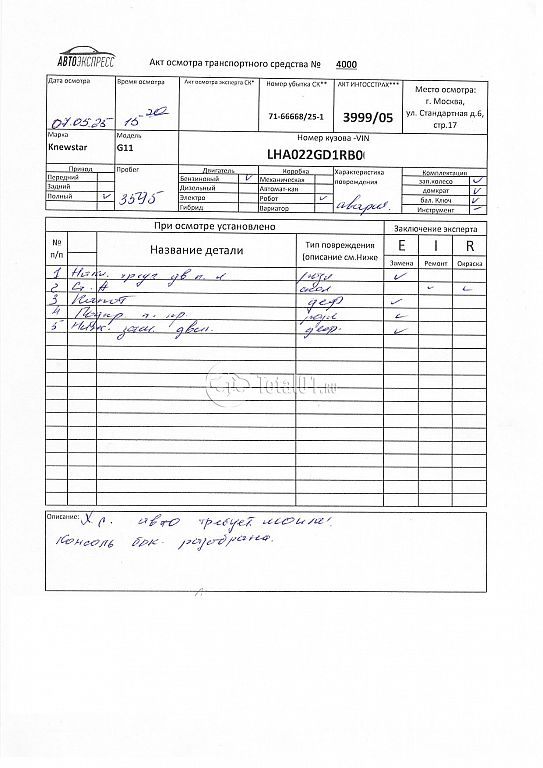 АВТОЭКСПРЕСС
Акт осмотра транспортного средства № 4000
Дата осмотра Время осмотра Акт осмотра эксперта СК* Номер убытка СК** АКТ ИНГОССТРАХ*** Место осмотра:
г. Москва,
ул. Стандартная д.6,
стр.17
07.05.25 15-20 71-66668/25-1 3999/05
Марка Модель Номер кузова -VIN
Knewstar G11 LHA022GD1RB0
Привод Пробег Двигатель Коробка Характеристика повреждения Комплектация
Передний Бензиновый ✓ Механическая зап.колесо ✓
Задний Дизельный Автомат-кая домкрат ✓
Полный ✓ 3595 Электро Робот ✓ авария. бал. Ключ ✓
Гибрид Вариатор Инструмент ✓
При осмотре установлено Заключение эксперта
№ п/п Название детали Тип повреждения (описание см.Ниже E I R
Замена Ремонт Окраска
1 ✓
2 Ст. А скол ✓ ✓
3 Капот деф ✓
4 ✓
5 Ниж. защ. двиг. деф. ✓
Total01.ru
Описание: Х.с. авто требует мойки!
Консоль брк. разобрана.